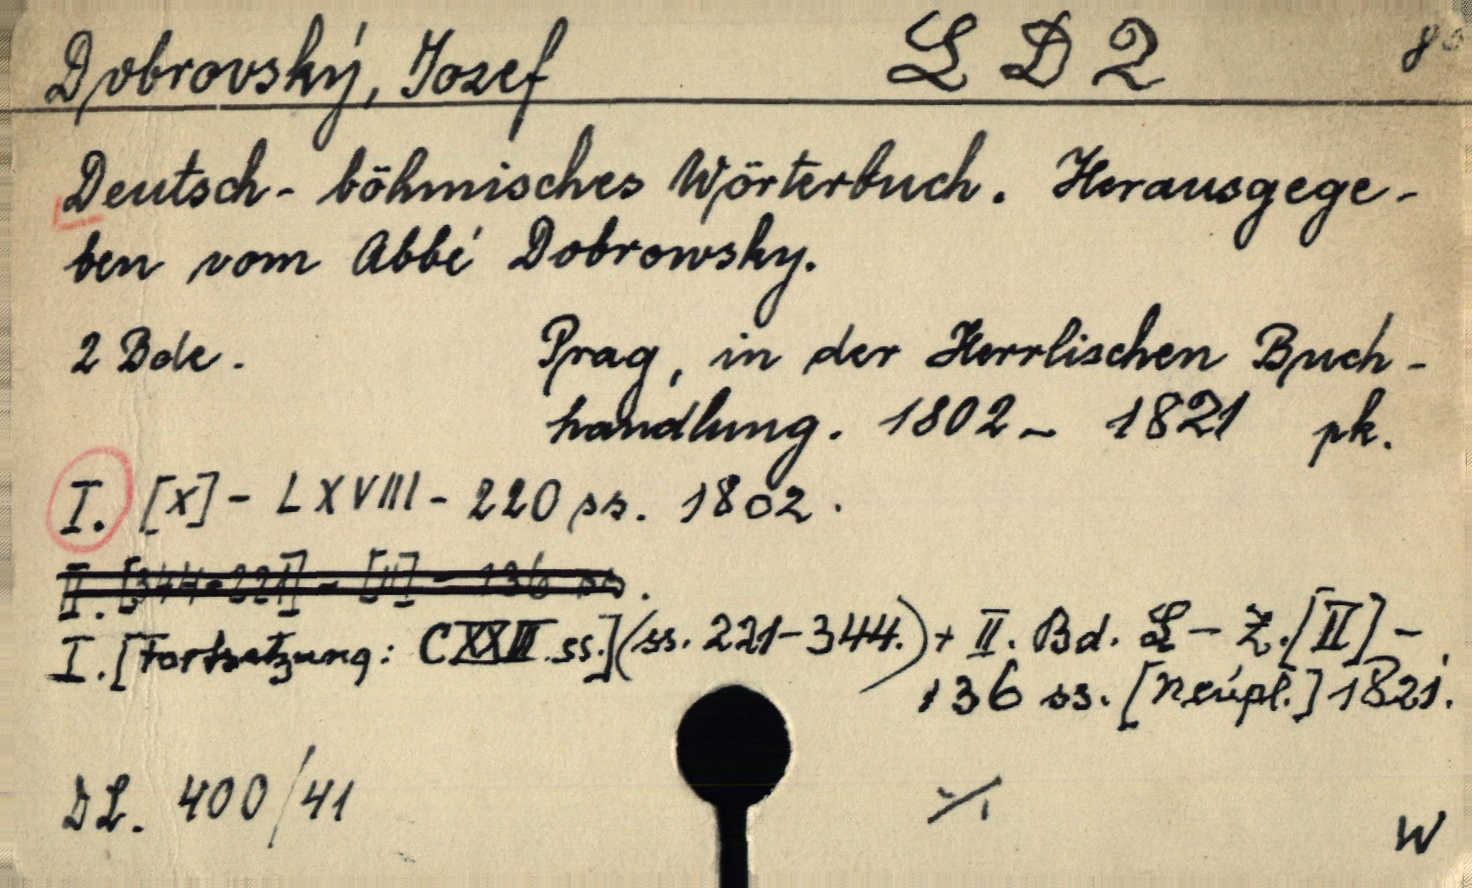 Dobrovský, Jozef L D 2 8°
Deutsch-böhmisches Wörterbuch. Herausgege-
ben vom Abbé Dobrowsky.
2 Bde. Prag, in der Herrlischen Buch-
handlung. 1802 - 1821 pk.
I. [X] - LXVIII - 220 ss. 1802.
II. [344-221] - [II] - 136 ss.
I. [Fortsetzung: CXXIII ss.] (ss. 221-344.) + II. Bd. L - Z. [II] -
136 ss. [Neúpl.] 1821.
DL. 400/41 W